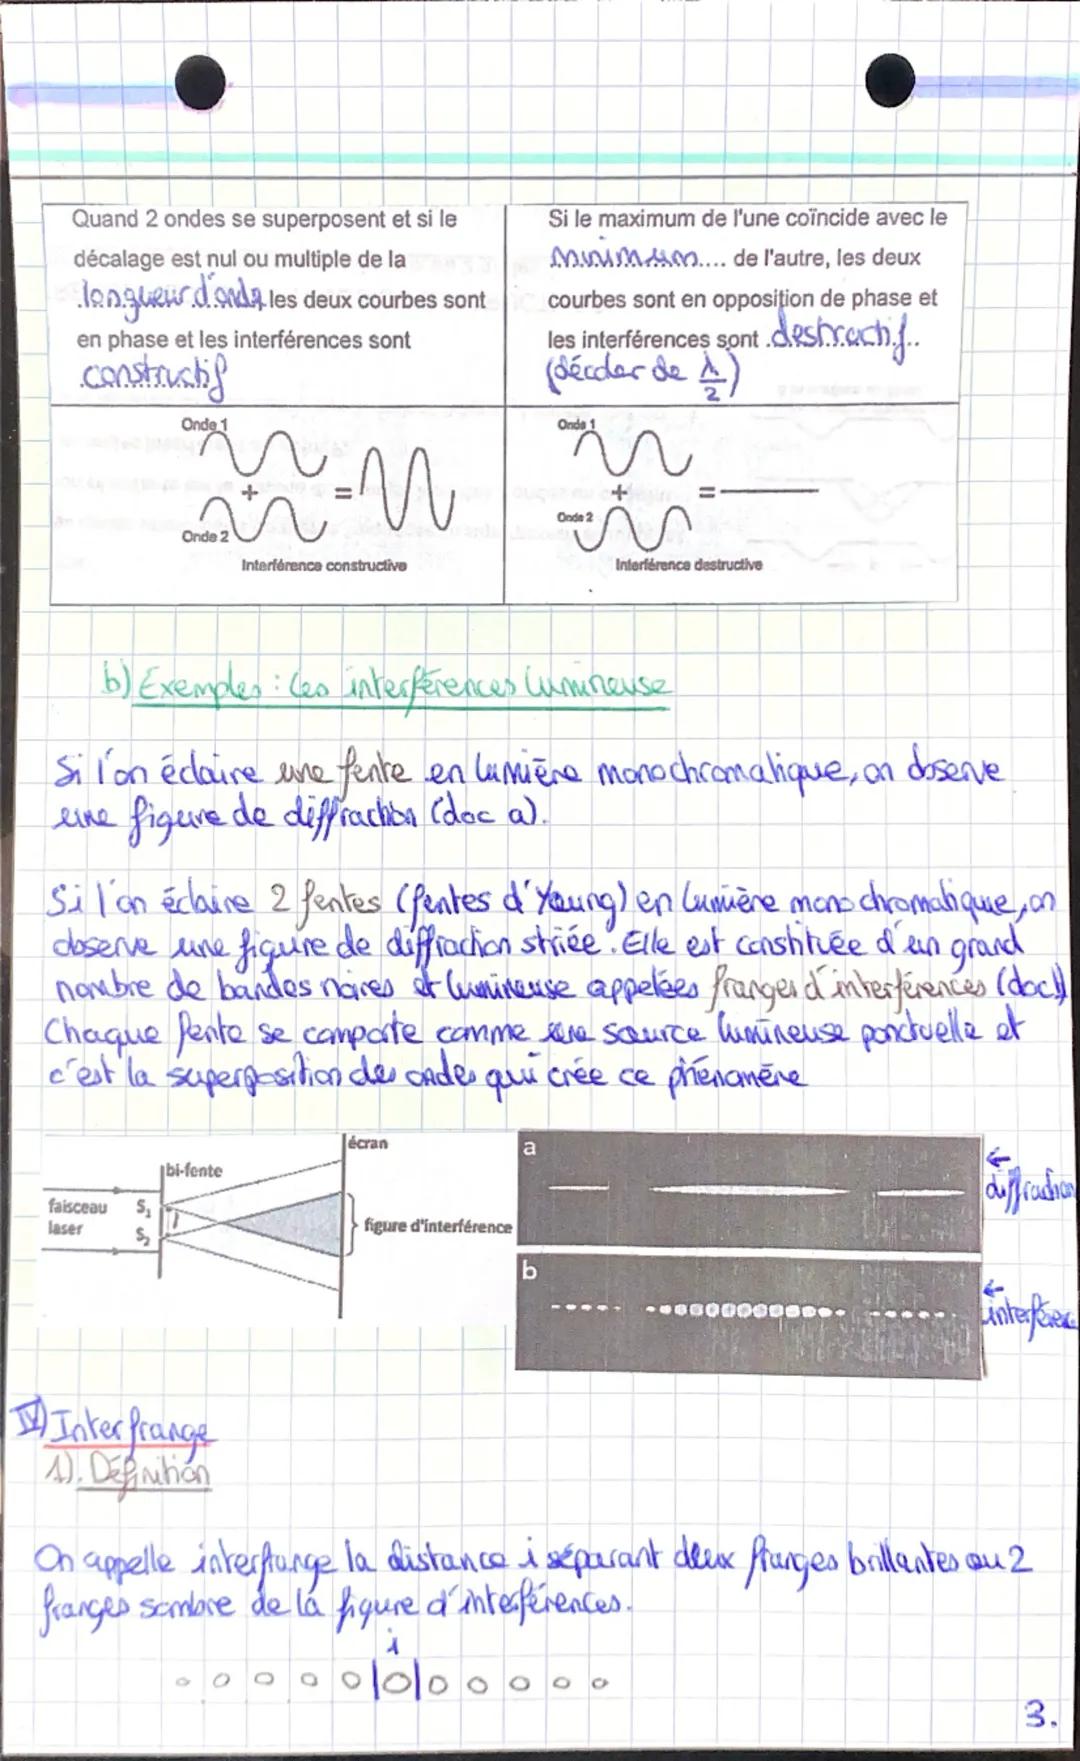 Quand 2 ondes se superposent et si le
décalage est nul ou multiple de la
longueur d'onde les deux courbes sont
en phase et les interférences sont
constructif
Si le maximum de l'une coïncide avec le
minimum.... de l'autre, les deux
courbes sont en opposition de phase et
les interférences sont .destructif..
(décaler de λ/2)
Onde 1
+
=
Onde 2
Interférence constructive
Onde 1
+
=
Onde 2
Interférence destructive
b) Exemples : Les interférences Lumineuse
Si l'on éclaire une fente en lumière monochromatique, on observe
une figure de diffraction (doc a).
Si l'on éclaire 2 fentes (fentes d'Young) en lumière monochromatique, on
observe une figure de diffraction striée. Elle est constituée d'un grand
nombre de bandes noires et lumineuse appelées franges d'interférences (doc b)
Chaque fente se comporte comme une source lumineuse ponctuelle et
c'est la superposition des ondes qui crée ce phénomène
écran
bi-fente
faisceau
laser
S1
S2
figure d'interférence
a
← diffraction
b
←
IV) Interfrange
1). Définition
On appelle interfrange la distance i séparant deux franges brillantes ou 2
franges sombre de la figure d'interférences.
i
3.